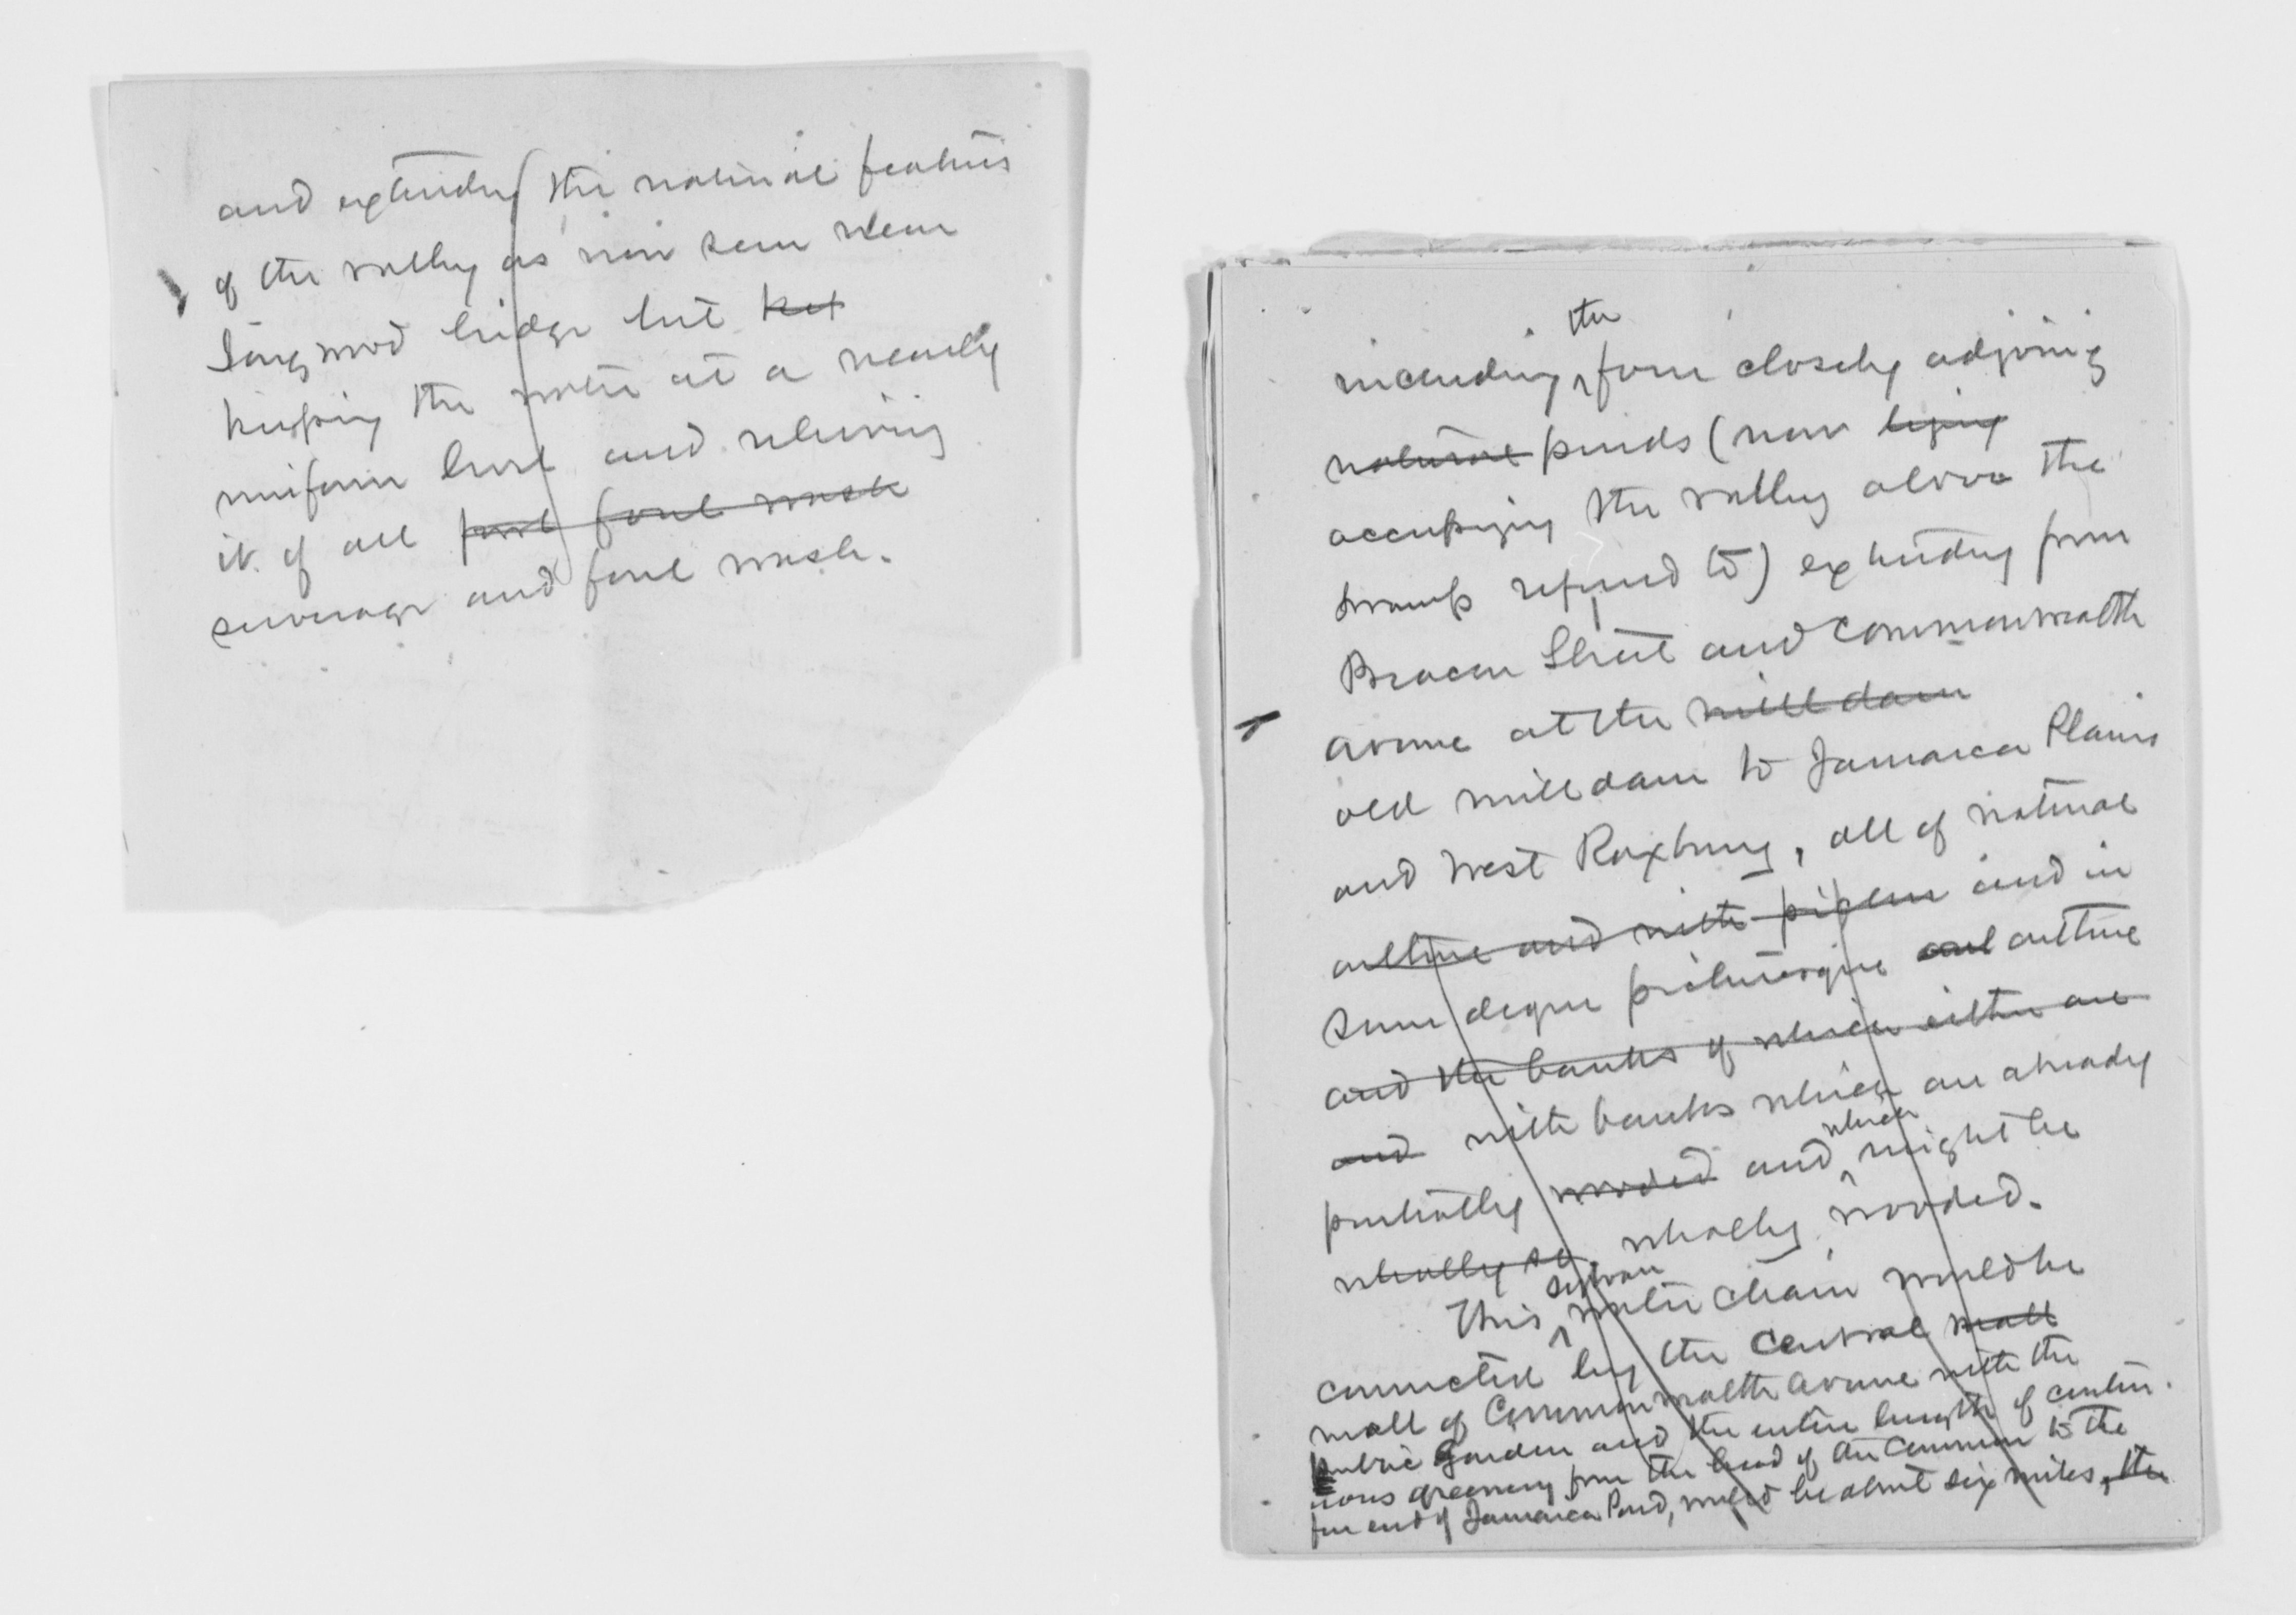 and extending the natural features
of the valley as now seen near
Longwood bridge but ket
keeping the water at a nearly
uniform level and relieving
it of all foul foul wash
sewerage and foul wash.
including the four closely adjoining
natural ponds (now lying
occupying the valley above the
swamp referred to) extending from
Beacon Street and Commonwealth
avenue at the mill dam
old mill dam to Jamaica Plains
and West Roxbury, all of natural
outline and with and in
some degree picturesque and outline
and the banks of which either are
and with banks which are already
partially wooded and which might be
wholly so wholly wooded.
This sylvan water chain would be
connected by the central mall
mall of Commonwealth avenue with the
public Garden and the entire length of contin-
uous greenery from the head of the Common to the
far end of Jamaica Pond, would be about six miles, the